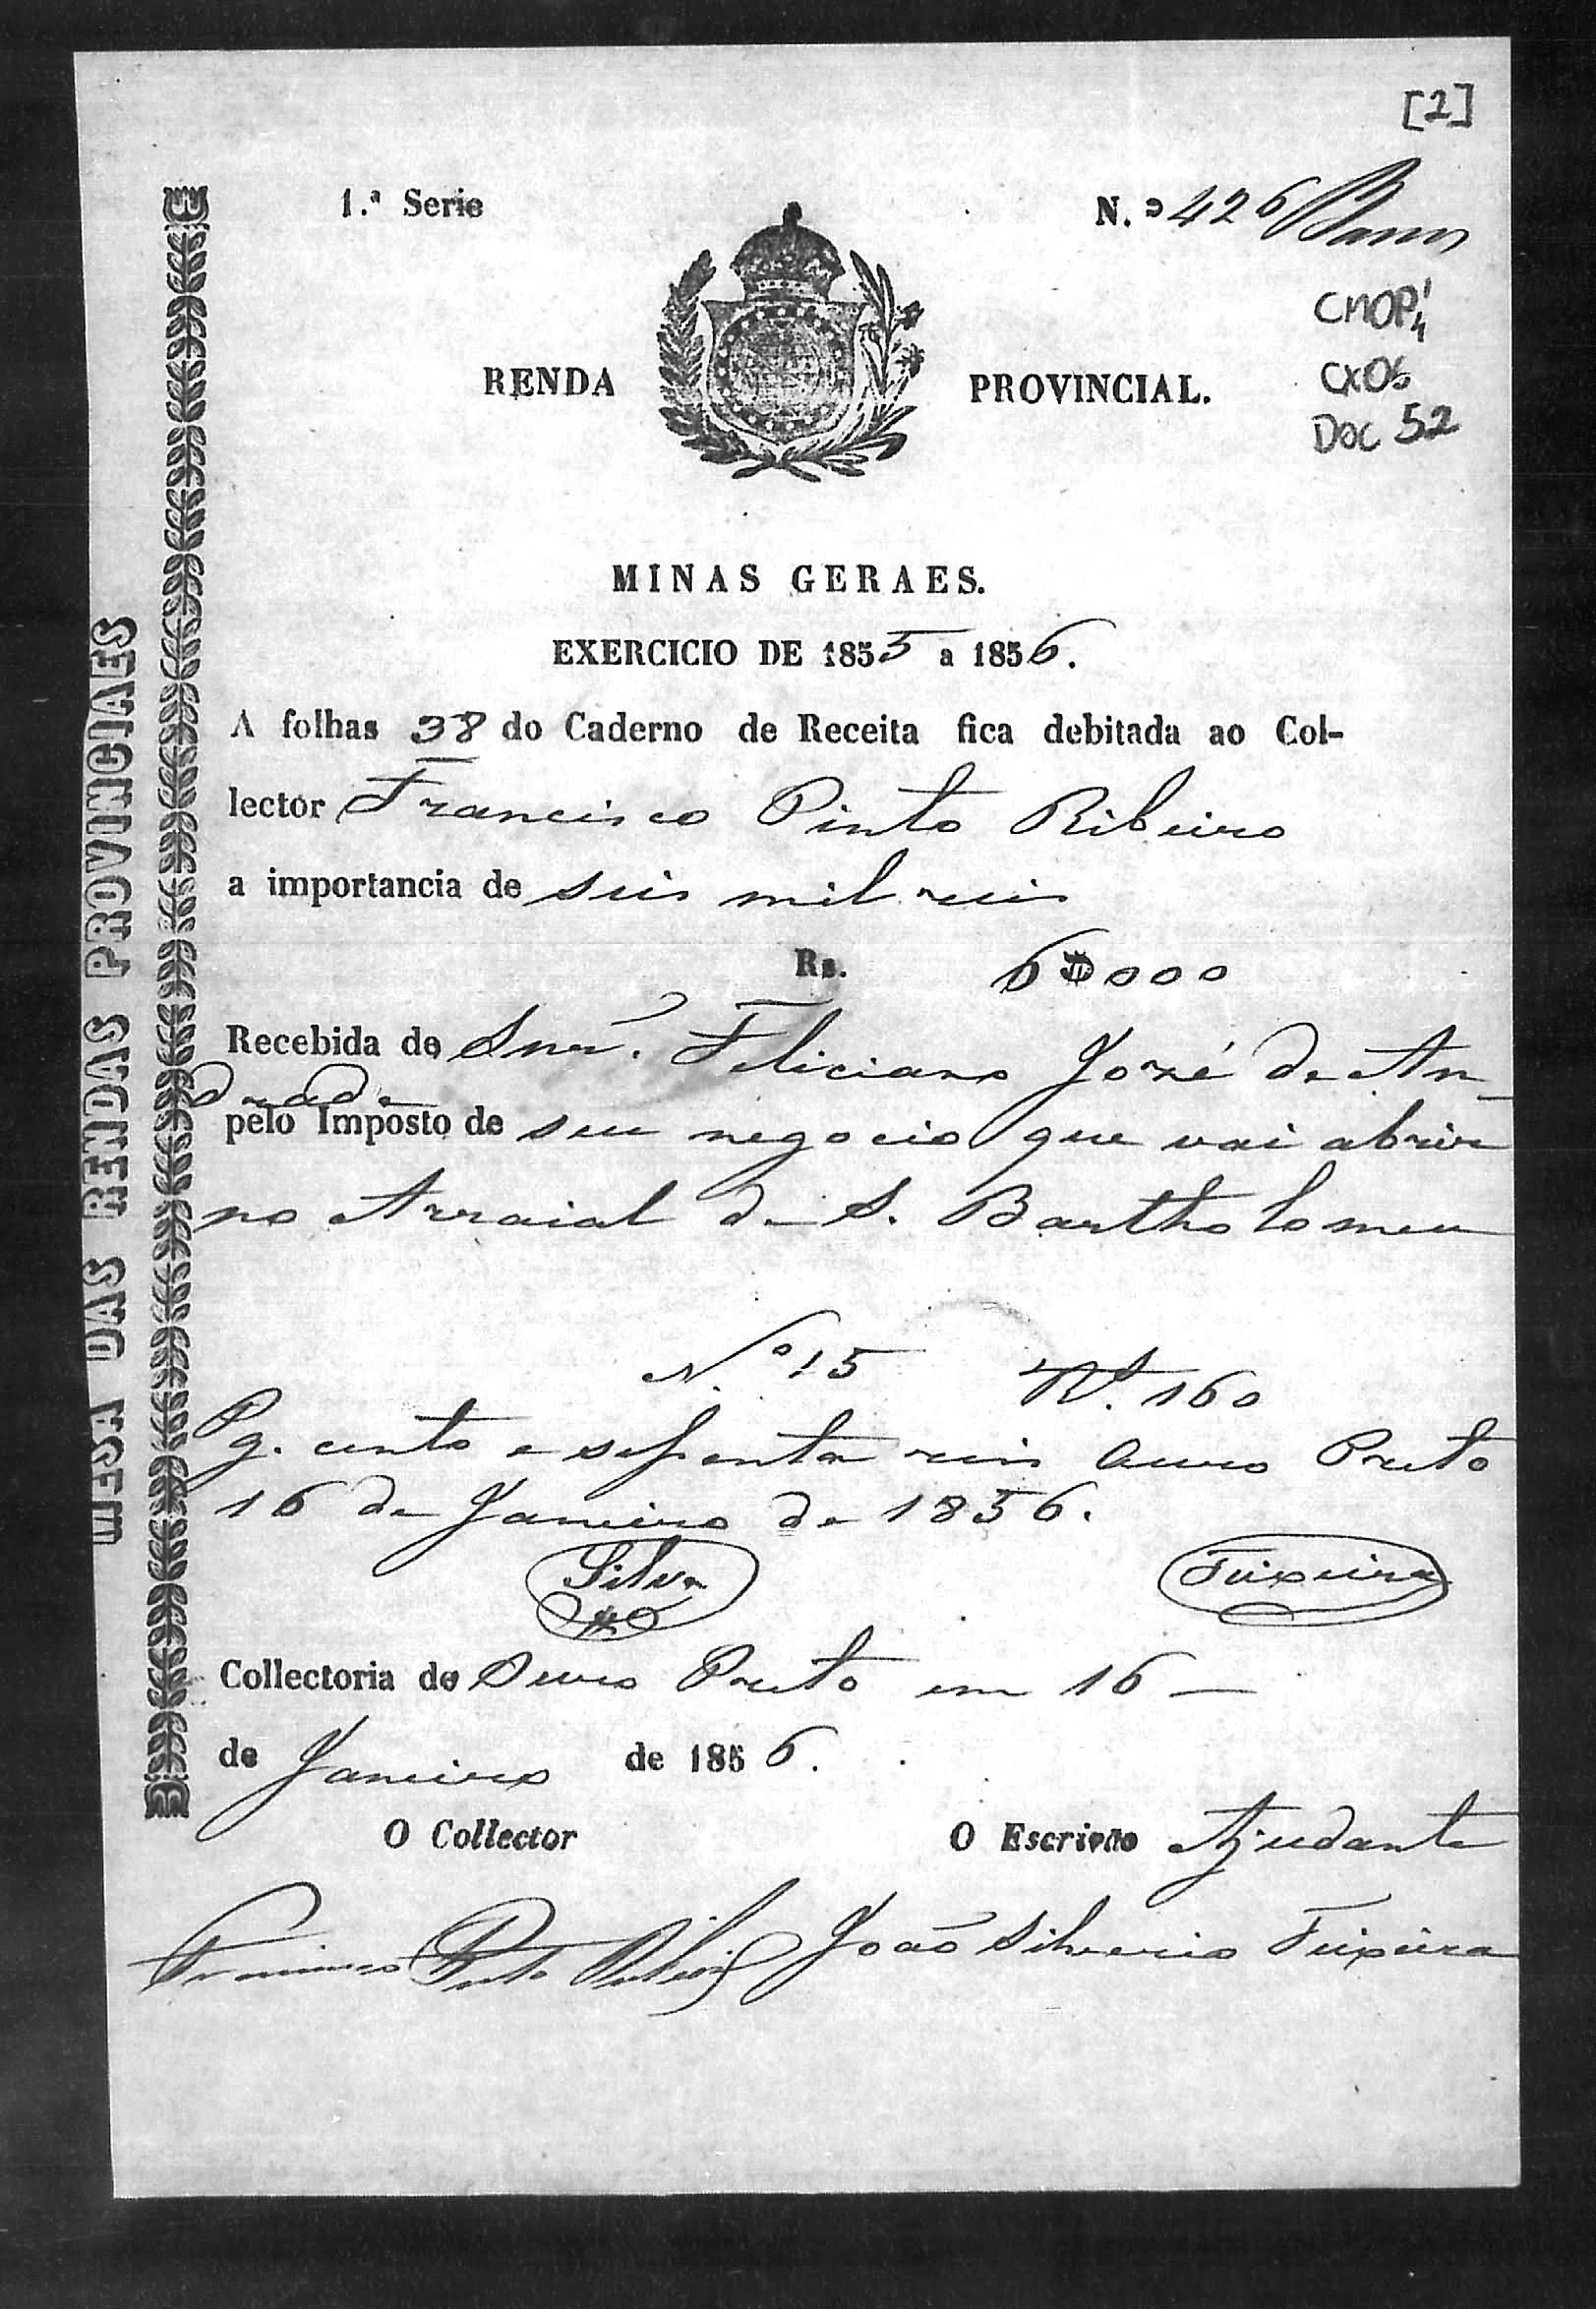 [2]
1.ª Serie
N.º 426
CMOP 1/4
CX06
DOC 52
RENDA PROVINCIAL.
MINAS GERAES.
EXERCICIO DE 1855 a 1856.
A folhas 38 do Caderno de Receita fica debitada ao Col-
lector Francisco Pinto Ribeiro
a importancia de seis mil reis
Rs. 6$000
Recebida do Snr. Feliciano José de An-
drade
pelo Imposto de seu negocio que vai abrir
no Arraial de S. Bartholomeu
N.º 15 Rs. 160
Pg. cento e sessenta reis Ouro Preto
16 de Janeiro de 1856.
Silva Teixeira
Collectoria do Ouro Preto em 16
de Janeiro de 1856.
O Collector O Escrivão Ajudante
Francisco Pinto Ribeiro João Silverio Teixeira
MESA DAS RENDAS PROVINCIAES